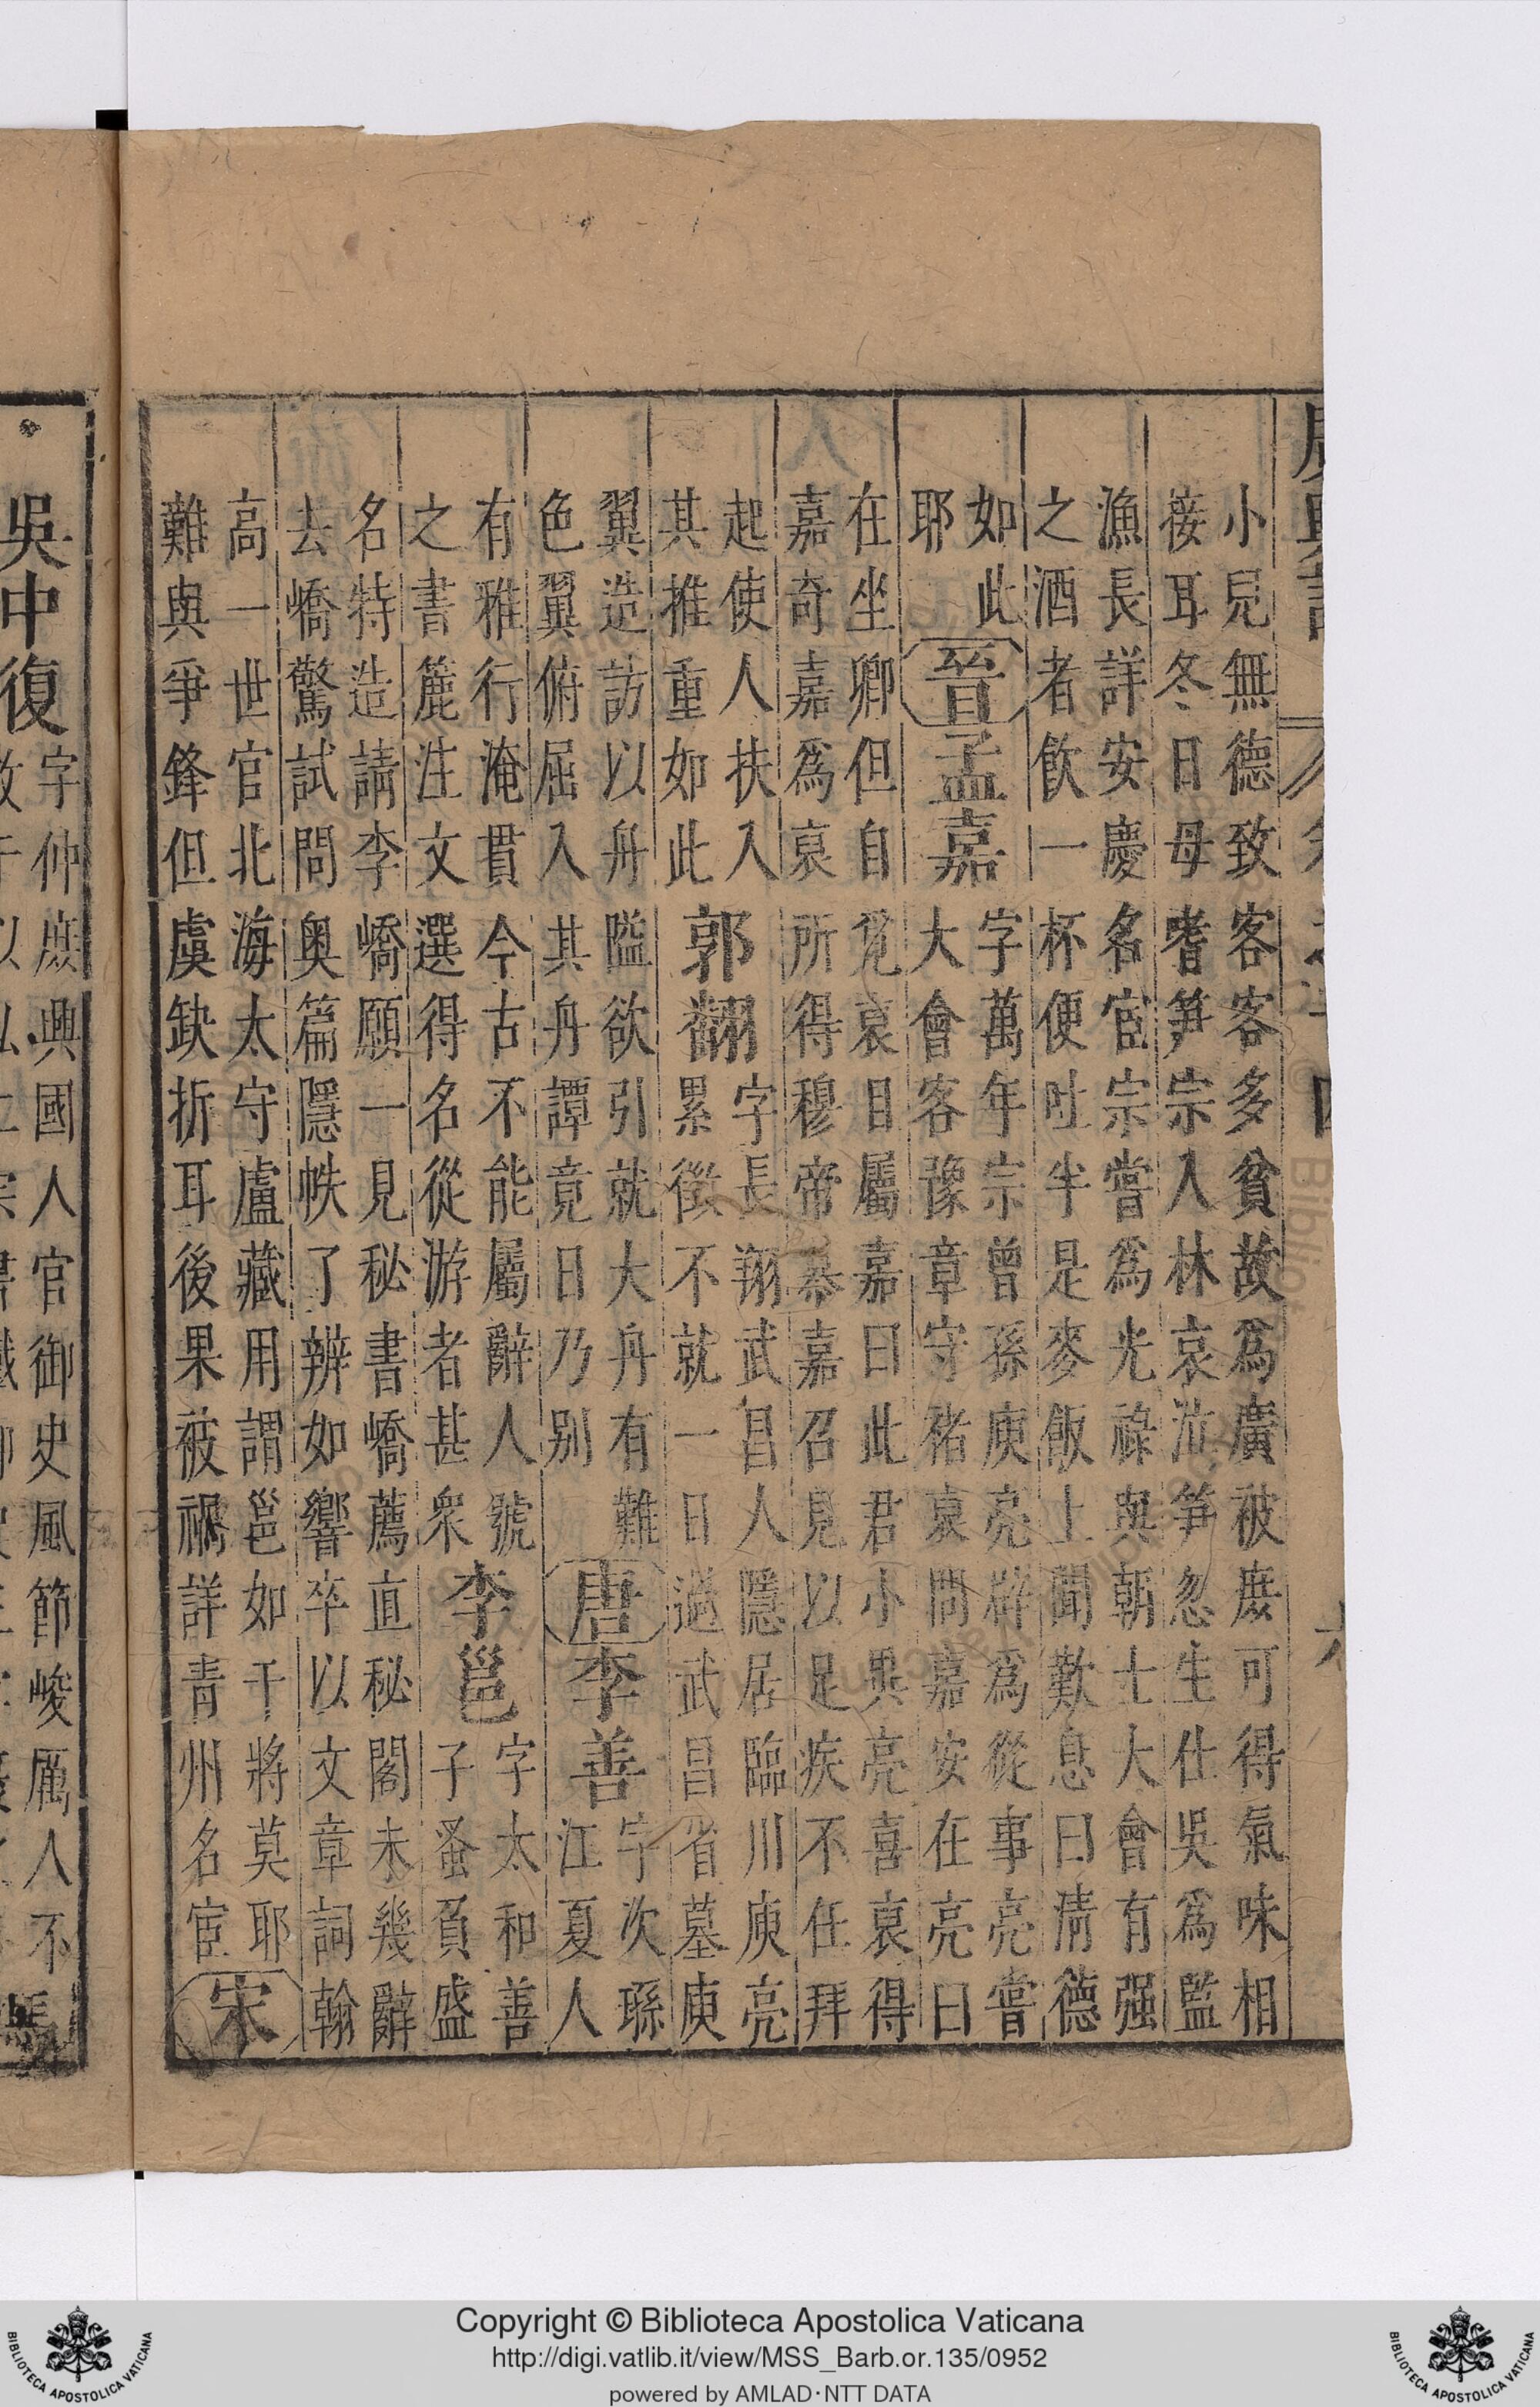 小兒無德致客客多貧故爲廣被庻可得氣味相
接耳冬日母嗜笋宗入林哀泣笋忽生仕吳爲監
漁長詳安慶名宦宗嘗爲光祿與朝士大會有强
之酒者飲一杯便吐半是麥飯上聞歎息曰淸德
如此
耶
晉
孟嘉
字萬年宗曾孫庾亮辟爲從事亮嘗
大會客豫章守褚裒問嘉安在亮曰
在坐卿但自覓裒目屬嘉曰此君小異亮喜裒得
嘉奇嘉爲裒所得穆帝慕嘉召見以足疾不任拜
起使人扶入
其推重如此
郭翻
字長翔武昌人隱居臨川庾亮
累徵不就一日過武昌省墓庾
翼造訪以舟隘欲引就大舟有難
色翼俯屈入其舟譚竟日乃别
唐
李善
字次孫
江夏人
有雅行淹貫今古不能屬辭人號
之書簏注文選得名從游者甚衆
李邕
字太和善
子蚤負盛
名特造請李嶠願一見秘書嶠薦直秘閣未幾辭
去嶠驚試問奥篇隱帙了辨如響卒以文章詞翰
高一世官北海太守盧藏用謂邕如干將莫耶
難與爭鋒但虞缺折耳後果被禍詳青州名宦
宋
吳中復
字仲庻興國人官御史風節峻厲人不
Copyright © Biblioteca Apostolica Vaticana
http://digi.vatlib.it/view/MSS_Barb.or.135/0952
powered by AMLAD·NTT DATA
BIBLIOTECA APOSTOLICA VATICANA
BIBLIOTECA APOSTOLICA VATICANA